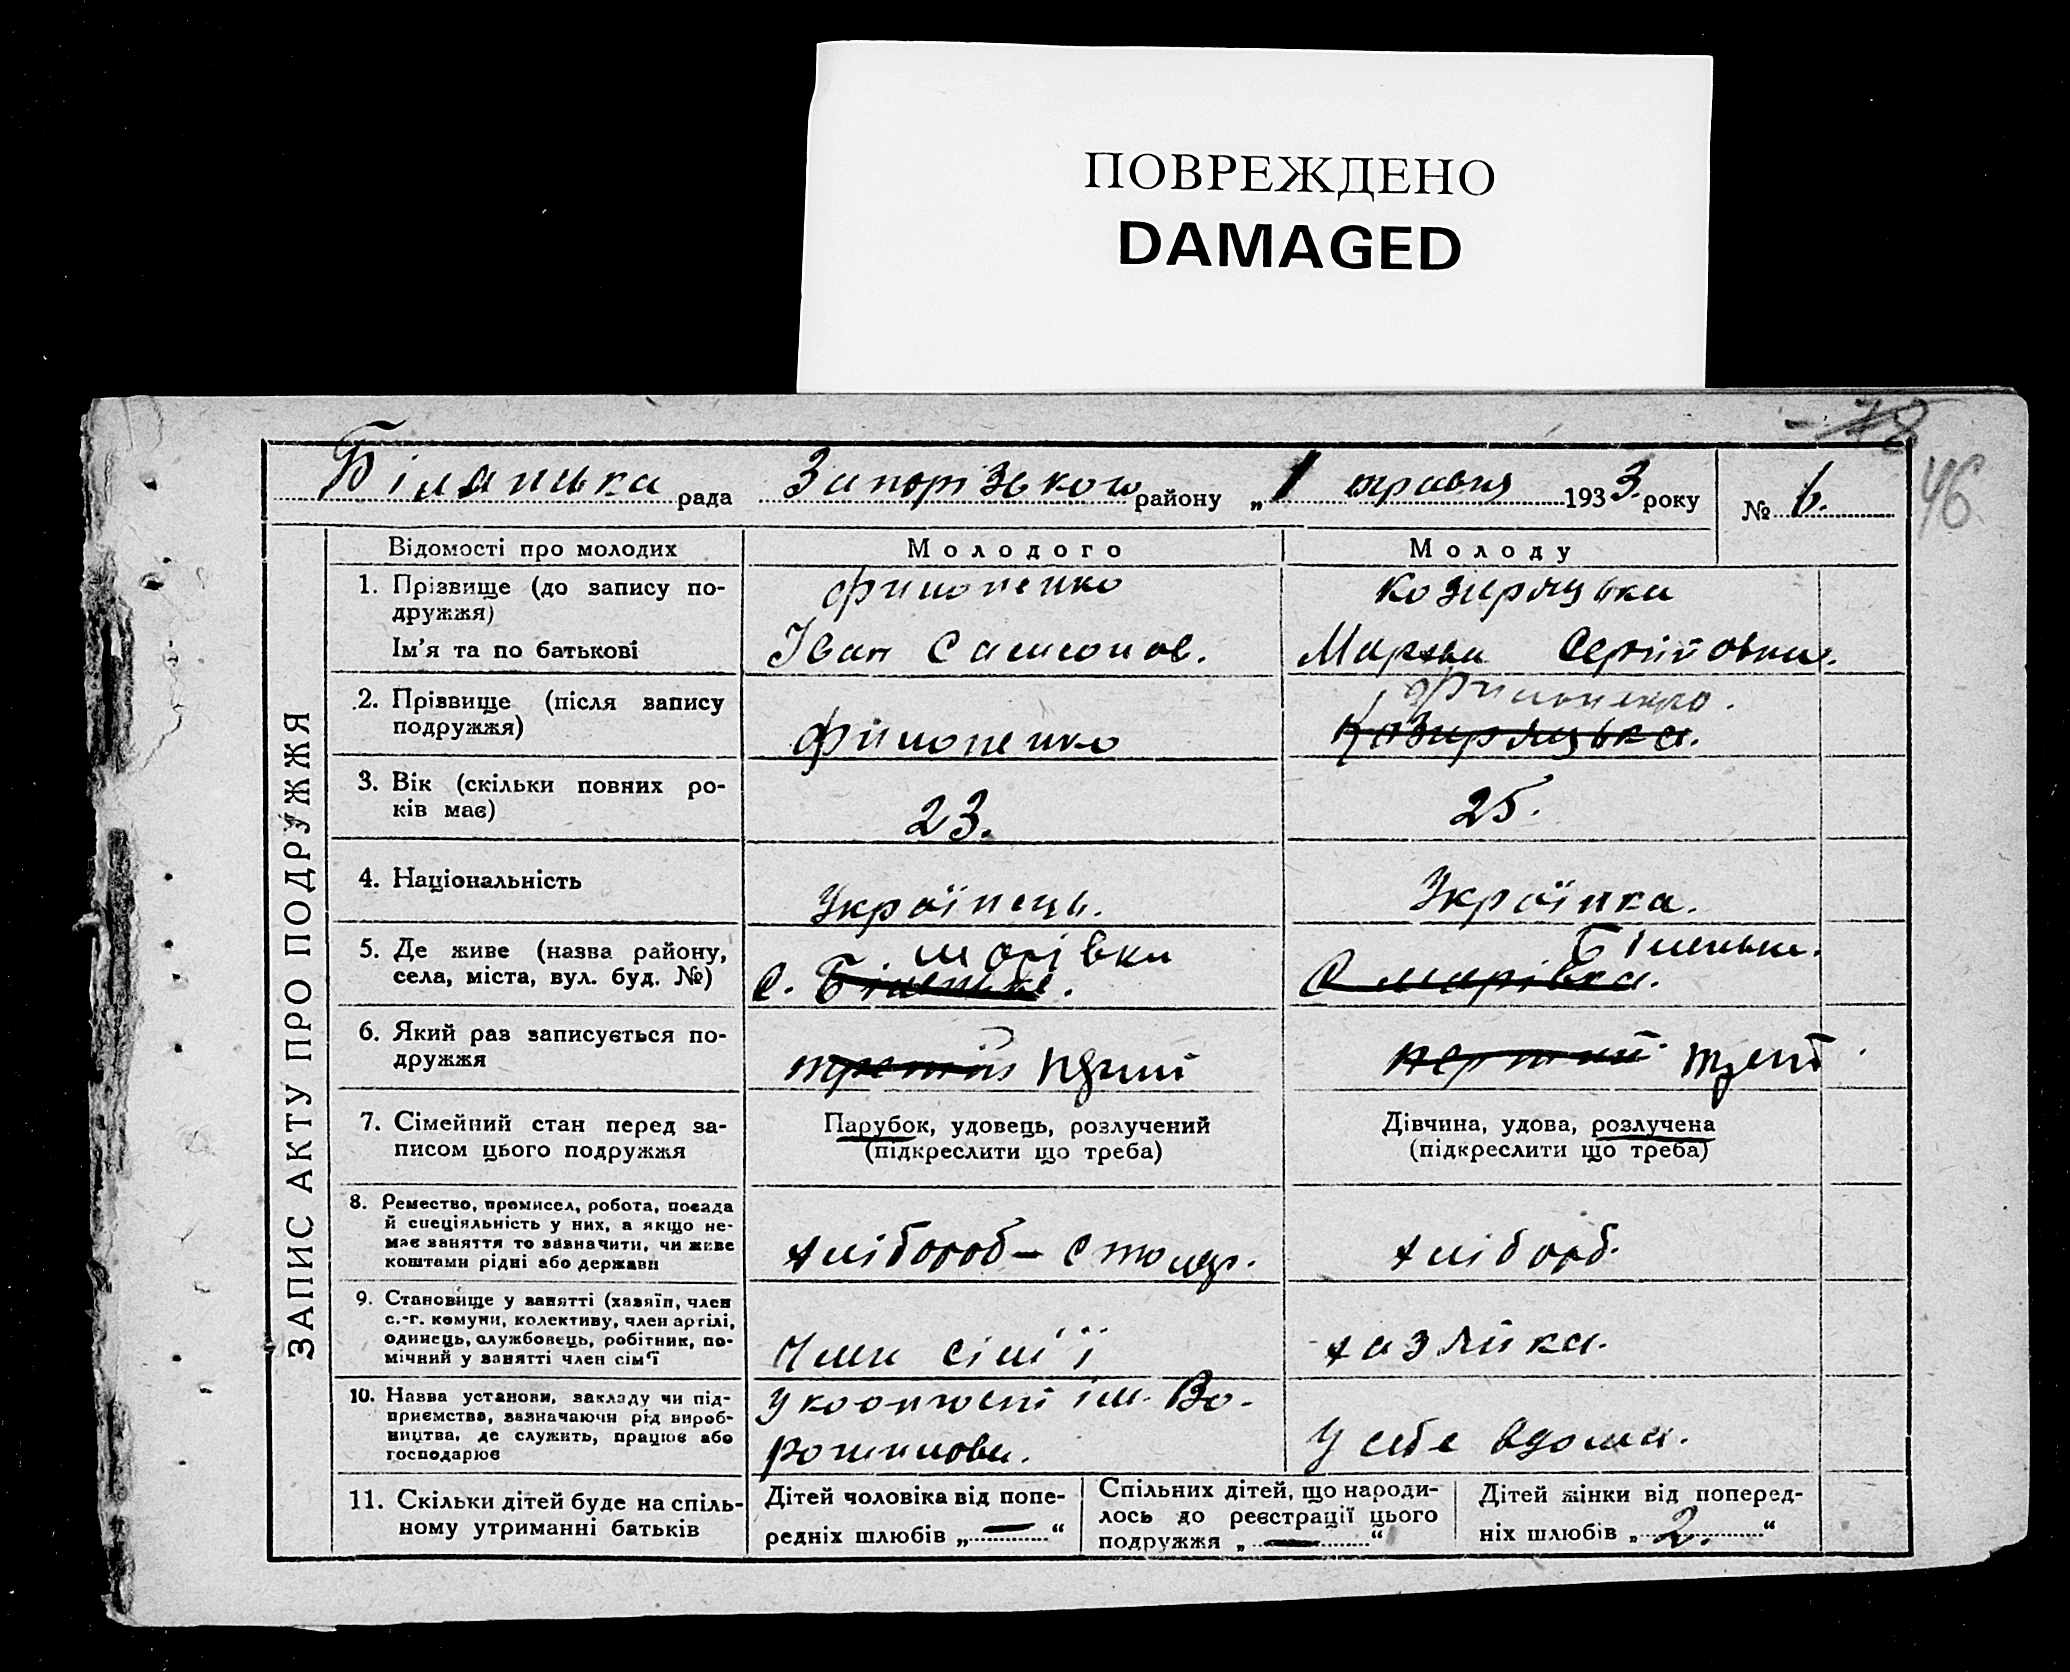 ПОВРЕЖДЕНО
DAMAGED
78
46
Біланська рада Запорізького району „1 травня 1933 року № 6.
ЗАПИС АКТУ ПРО ПОДРУЖЖЯ
Відомості про молодих Молодого Молоду
1. Прізвище (до запису по-
дружжя)
Филоненко
Козирацька
Ім'я та по батькові
Іван Самсонов.
Марья
2. Прізвище (після запису
подружжя)
Філоненко
Филоненко.
Козирацька.
3. Вік (скільки повних ро-
ків має)
23.
25.
4. Національність
Українець.
Українка.
5. Де живе (назва району,
села, міста, вул. буд. №)
Марівка
с. Біленьке.
Біленьке.
с Марівка.
6. Який раз записується по-
дружжя
третій
перший
7. Сімейний стан перед за-
писом цього подружжя
Парубок, удовець, розлучений
(підкреслити що треба)
Дівчина, удова, розлучена
(підкреслити що треба)
8. Ремество, промисел, робота, посада
й спеціяльність у них, а якщо не-
має заняття то зазначити, чи живе
коштами рідні або держави
хлібороб – столяр.
хлібороб.
9. Становище у занятті (хазяїн, член
с.-г. комуни, колективу, член артілі,
одинець, службовець, робітник, по-
мічний у занятті член сім'ї
Член сім'ї
хазяйка.
10. Назва установи, закладу чи під-
приємства, зазначаючи рід вироб-
ництва, де служить, працює або
господарює
У ім. Во-
рошилова.
У себе вдома.
11. Скільки дітей буде на спіль-
ному утриманні батьків
Дітей чоловіка від попе-
редніх шлюбів „ — “
Спільних дітей, що народи-
лось до реєстрації цього
подружжя „ — “
Дітей жінки від поперед-
ніх шлюбів „ 2. “